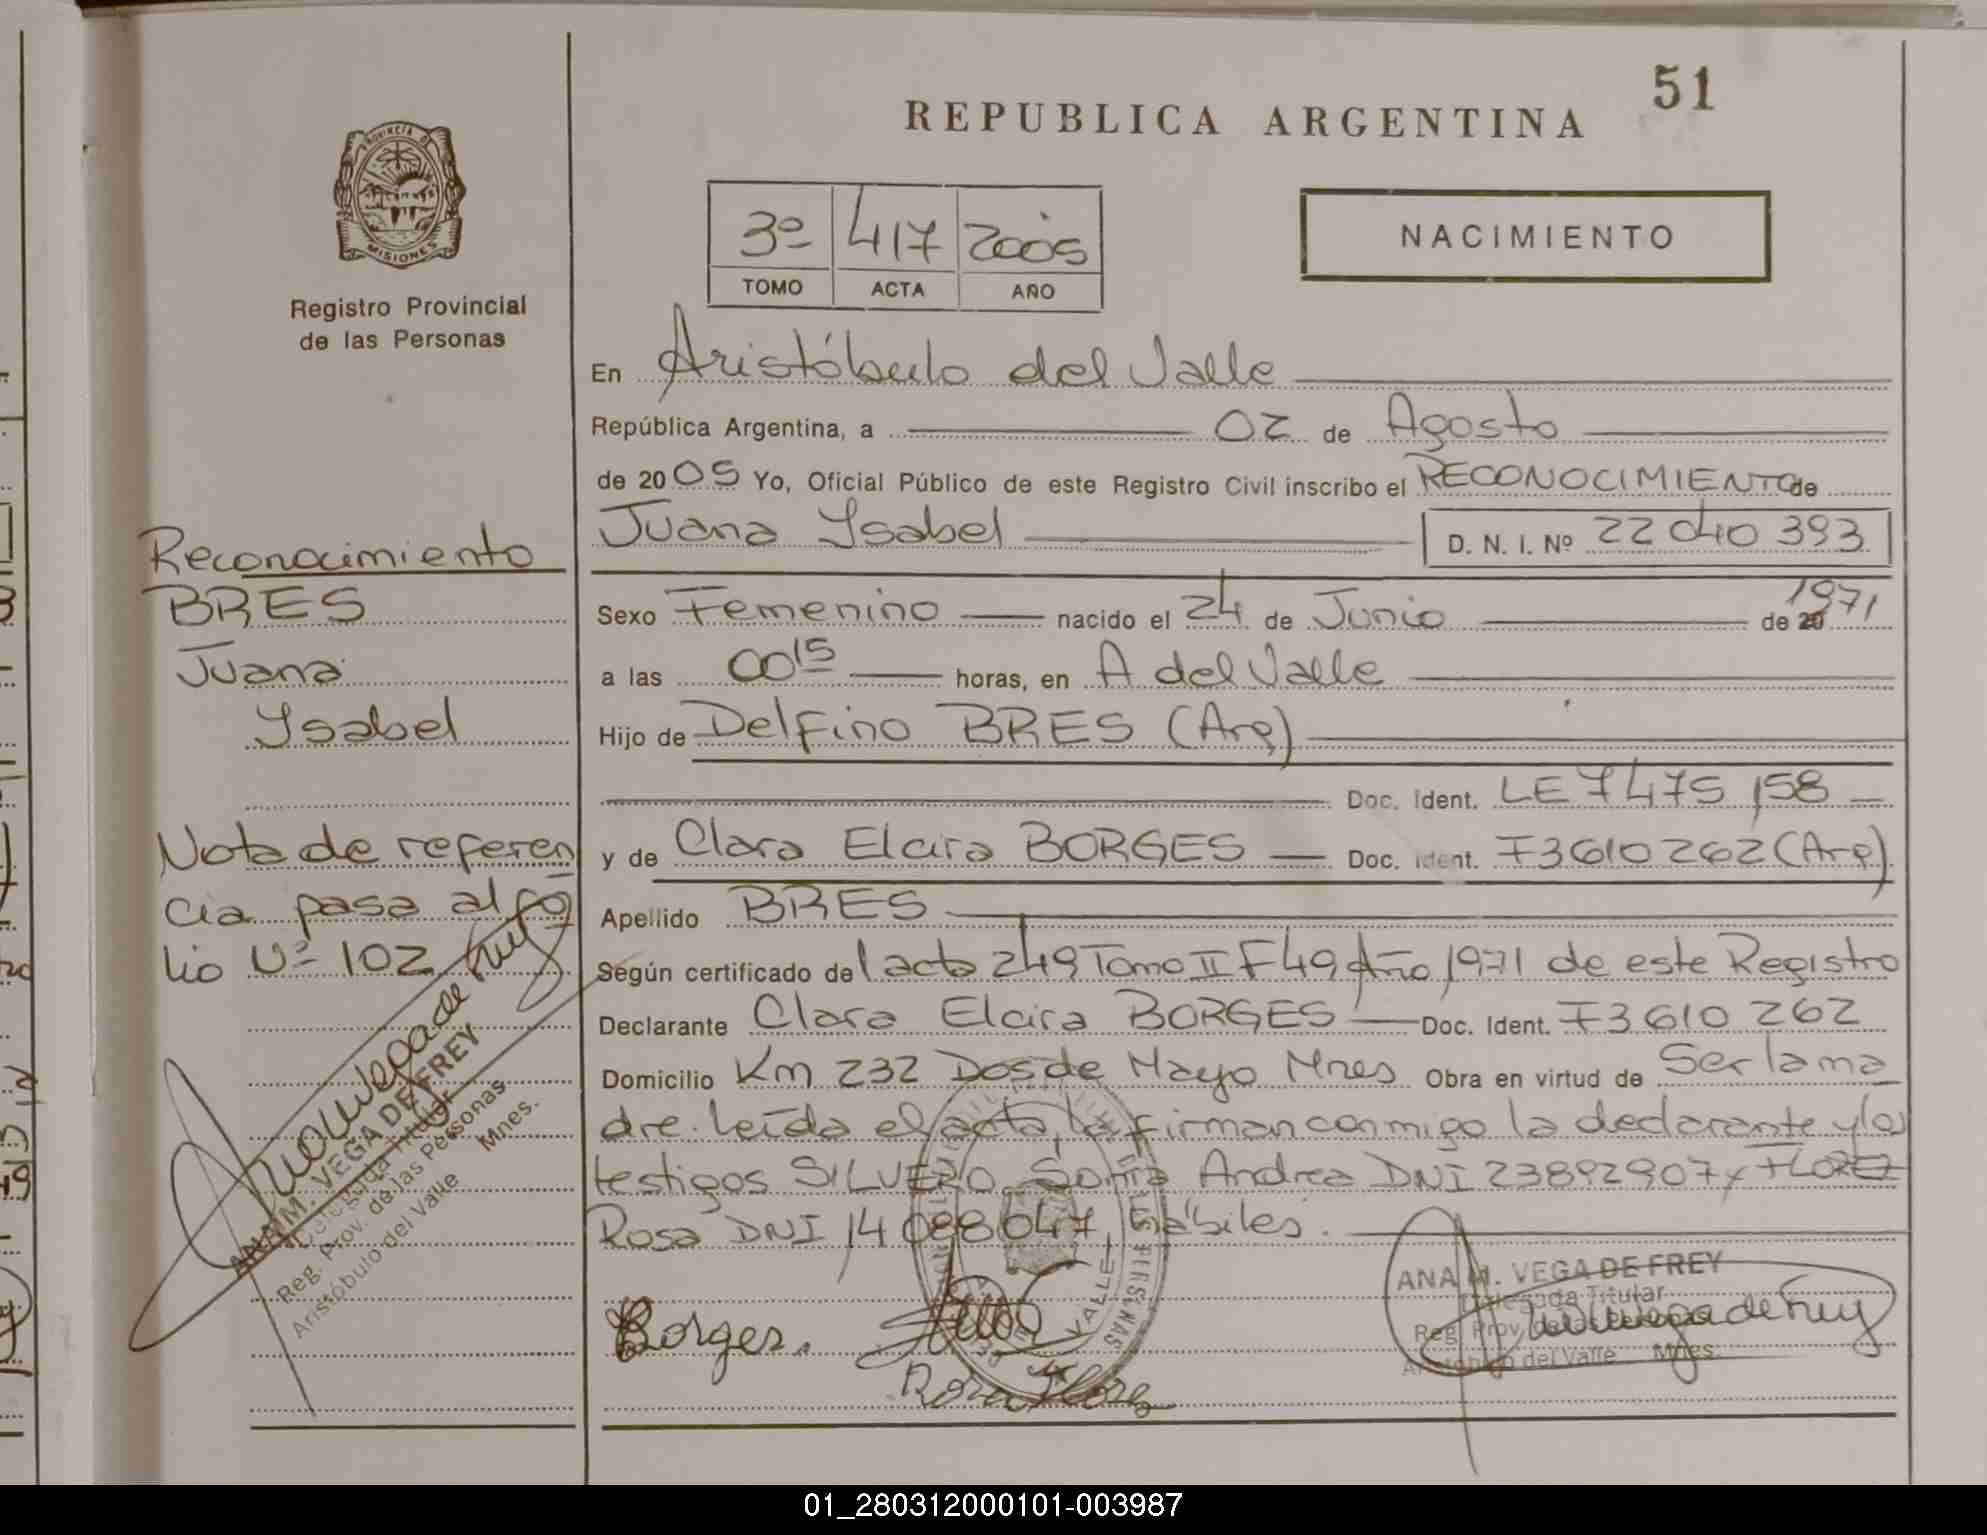 51
REPUBLICA ARGENTINA
PROVINCIA DE
MISIONES
Registro Provincial
de las Personas
3º 417 2005
TOMO ACTA AÑO
NACIMIENTO
En Aristóbulo del Valle
República Argentina, a 02 de Agosto
de 2005 Yo, Oficial Público de este Registro Civil inscribo el RECONOCIMIENTO de
Juana Ysabel D. N. I. Nº 22040393
Sexo Femenino nacido el 24 de Junio de 20 1971
a las 00 15 horas, en A del Valle
Hijo de Delfino BRES (Arg)
Doc. Ident. LE 7475158
y de Clara Elcira BORGES Doc. Ident. F3610262 (Arg)
Apellido BRES
Según certificado de l acta 249 Tomo II F49 Año 1971 de este Registro
Declarante Clara Elcira BORGES Doc. Ident. F3610262
Domicilio Km 232 Dos de Mayo Mnes Obra en virtud de Ser la ma
dre. Leída el acta, la firman conmigo la declarante y los
testigos SILVERO, Sonia Andrea DNI 23892907 y FLOREZ
Rosa DNI 14088047, hábiles.
Borges.
Rosa Flores
ANA M. VEGA DE FREY
Delegada Titular
Reg. Prov. de las Personas
Aristóbulo del Valle Mnes.
Reconocimiento
BRES
Juana
Ysabel
Nota de referen
cia pasa al fo
lio Nº 102
ANA M. VEGA DE FREY
Delegada Titular
Reg. Prov. de las Personas
Aristóbulo del Valle Mnes.
01_280312000101-003987